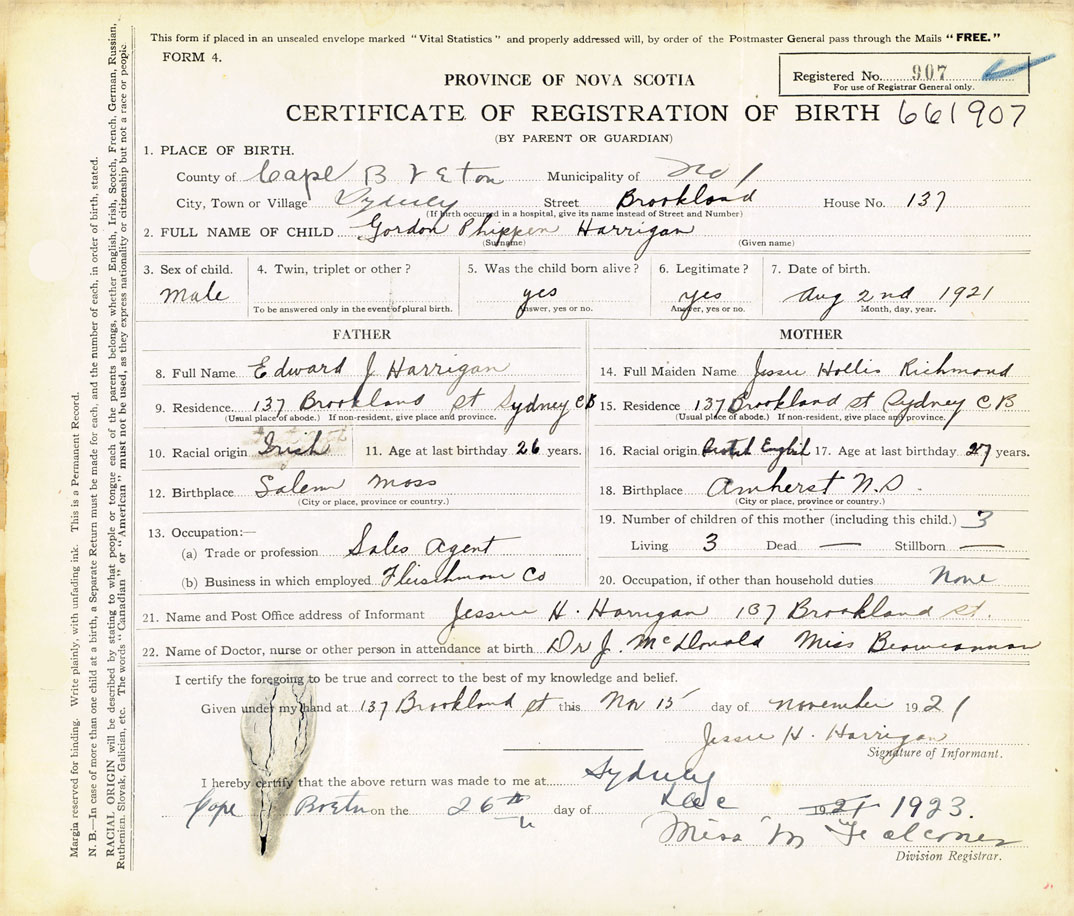 This form if placed in an unsealed envelope marked "Vital Statistics" and properly addressed will, by order of the Postmaster General pass through the Mails "FREE."
FORM 4.
Registered No. 907
For use of Registrar General only.
PROVINCE OF NOVA SCOTIA
CERTIFICATE OF REGISTRATION OF BIRTH 661907
(BY PARENT OR GUARDIAN)
1. PLACE OF BIRTH.
County of Cape BrEton Municipality of No 1
City, Town or Village Sydney Street Brookland House No. 137
(If birth occurred in a hospital, give its name instead of Street and Number)
2. FULL NAME OF CHILD Gordon Phippen Harrigan
(Surname) (Given name)
3. Sex of child. 4. Twin, triplet or other? 5. Was the child born alive? 6. Legitimate? 7. Date of birth.
Male yes yes Aug 2nd 1921
To be answered only in the event of plural birth. Answer, yes or no. Answer, yes or no. Month, day, year.
FATHER
8. Full Name Edward J Harrigan
9. Residence. 137 Brookland st Sydney CB
(Usual place of abode.) If non-resident, give place and province.
10. Racial origin Irish 11. Age at last birthday 26 years.
12. Birthplace Salem Mass
(City or place, province or country.)
13. Occupation:—
(a) Trade or profession Sales Agent
(b) Business in which employed Fleischman Co
MOTHER
14. Full Maiden Name Jessie Hollis Richmond
15. Residence 137 Brookland st Sydney C B
(Usual place of abode.) If non-resident, give place and province.
16. Racial origin Scotch English 17. Age at last birthday 27 years.
18. Birthplace Amherst N.S.
(City or place, province or country.)
19. Number of children of this mother (including this child.) 3
Living 3 Dead — Stillborn —
20. Occupation, if other than household duties None
21. Name and Post Office address of Informant Jessie H. Harrigan 137 Brookland st.
22. Name of Doctor, nurse or other person in attendance at birth Dr J. McDonald Miss
I certify the foregoing to be true and correct to the best of my knowledge and belief.
Given under my hand at 137 Brookland st this Nov 15 day of november 1921
Jessie H. Harrigan
Signature of Informant.
I hereby certify that the above return was made to me at Sydney
Cape Breton on the 26th day of Dec 1921 1923.
Miss M Falconer
Division Registrar.
Margin reserved for binding. Write plainly, with unfading ink. This is a Permanent Record.
N. B.—In case of more than one child at a birth, a Separate Return must be made for each, and the number of each, in order of birth, stated.
RACIAL ORIGIN will be described by stating to what people or tongue each of the parents belongs, whether English, Irish, Scotch, French, German, Russian,
Ruthenian, Slovak, Galician, etc. The words "Canadian" or "American" must not be used, as they express nationality or citizenship but not a race or people.